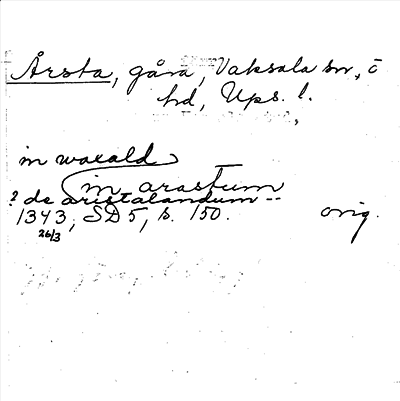 Årsta, gård, Vaksala sn, ō
hd, Ups. l.
in waxald
in arastum
? de aristalandum --
1343, SD5, s. 150. orig.
26/3